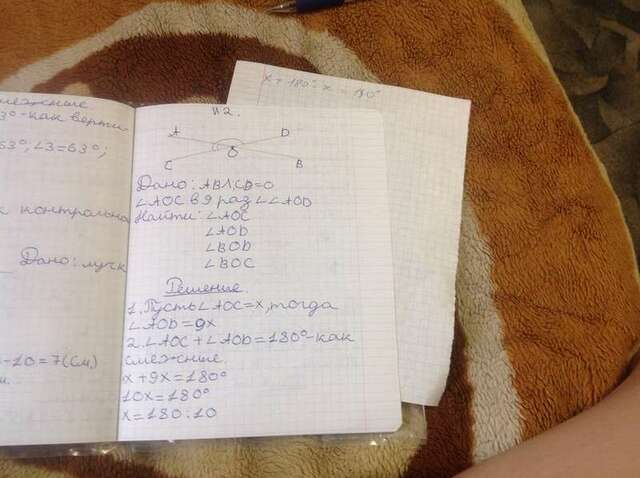 смежные
3°-как верти
63°; ∠3=63°;
к контрольна
Дано: луч к
-10=7(см)
x+180°-x=180°
№2.
A D
O
C B
Дано: AB∩CD=O
∠AOC в 9 раз ∠∠AOD
Найти: ∠AOC
∠AOD
∠BOD
∠BOC
Решение.
1. Пусть ∠AOC=x, тогда
∠AOD=9x
2. ∠AOC+∠AOD=180°-как
смежные.
x+9x=180°
10x=180°
x=180:10